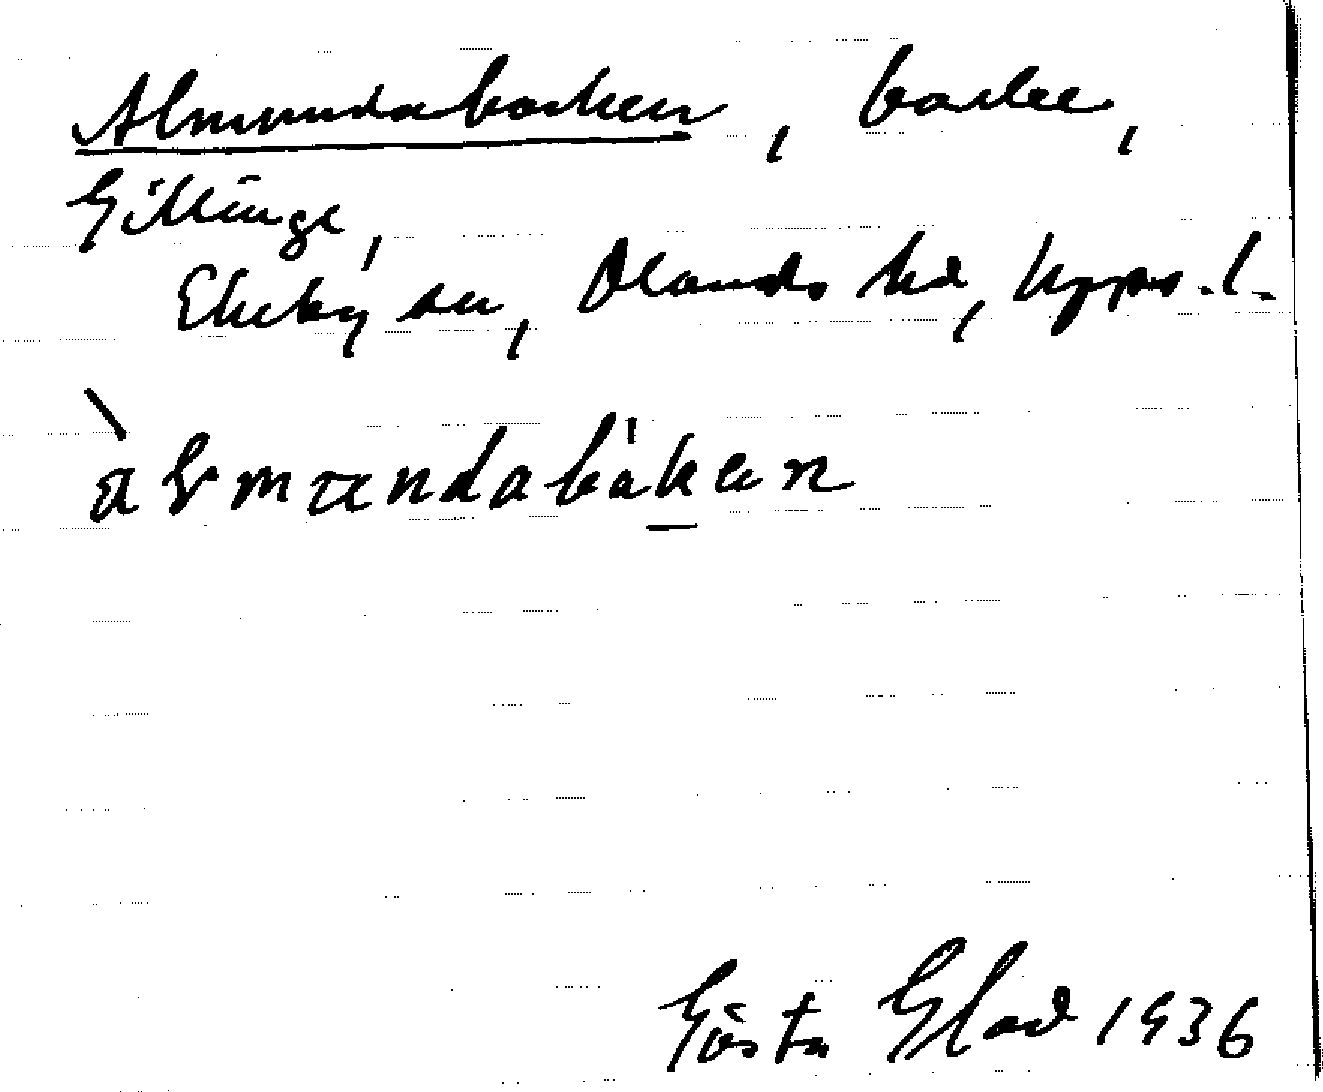 Almundabacken, backe,
Gillinge,
Ekeby sn, Olands hd, Upps. l.
àlmandabàken
Gösta Glad 1936